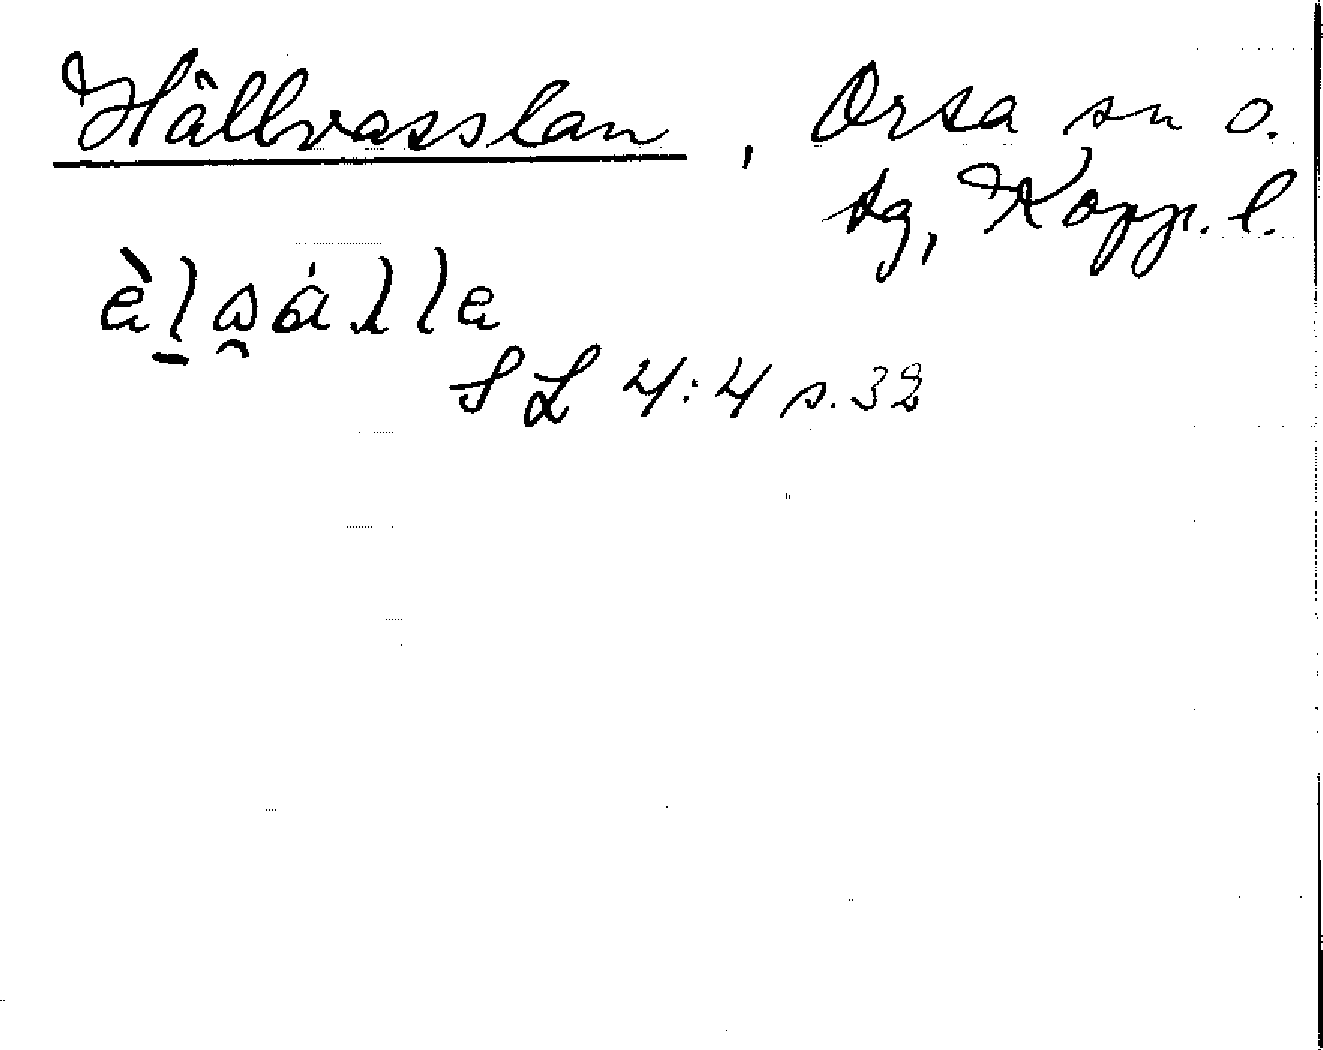 Hällvasslan, Orsa sn o.
tg, Kopp. l.
SL 4:4 s. 32